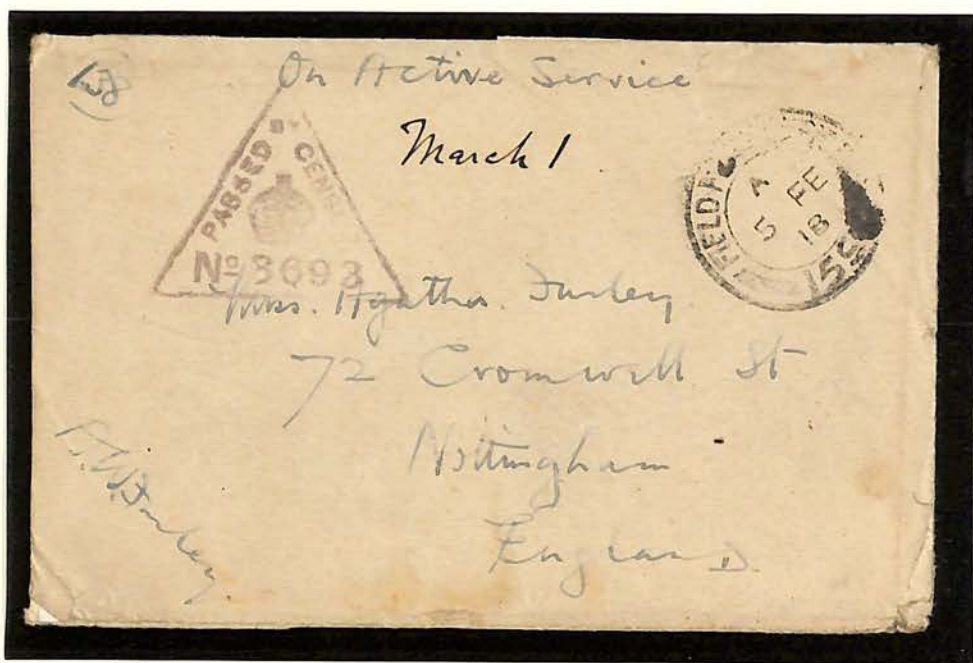 On Active Service
March 1
PASSED BY CENS
No 3693
FIELD P
A
5 FE
18
155
Miss. Agatha. Furley
72 Cromwell St
Nottingham
England
Furley